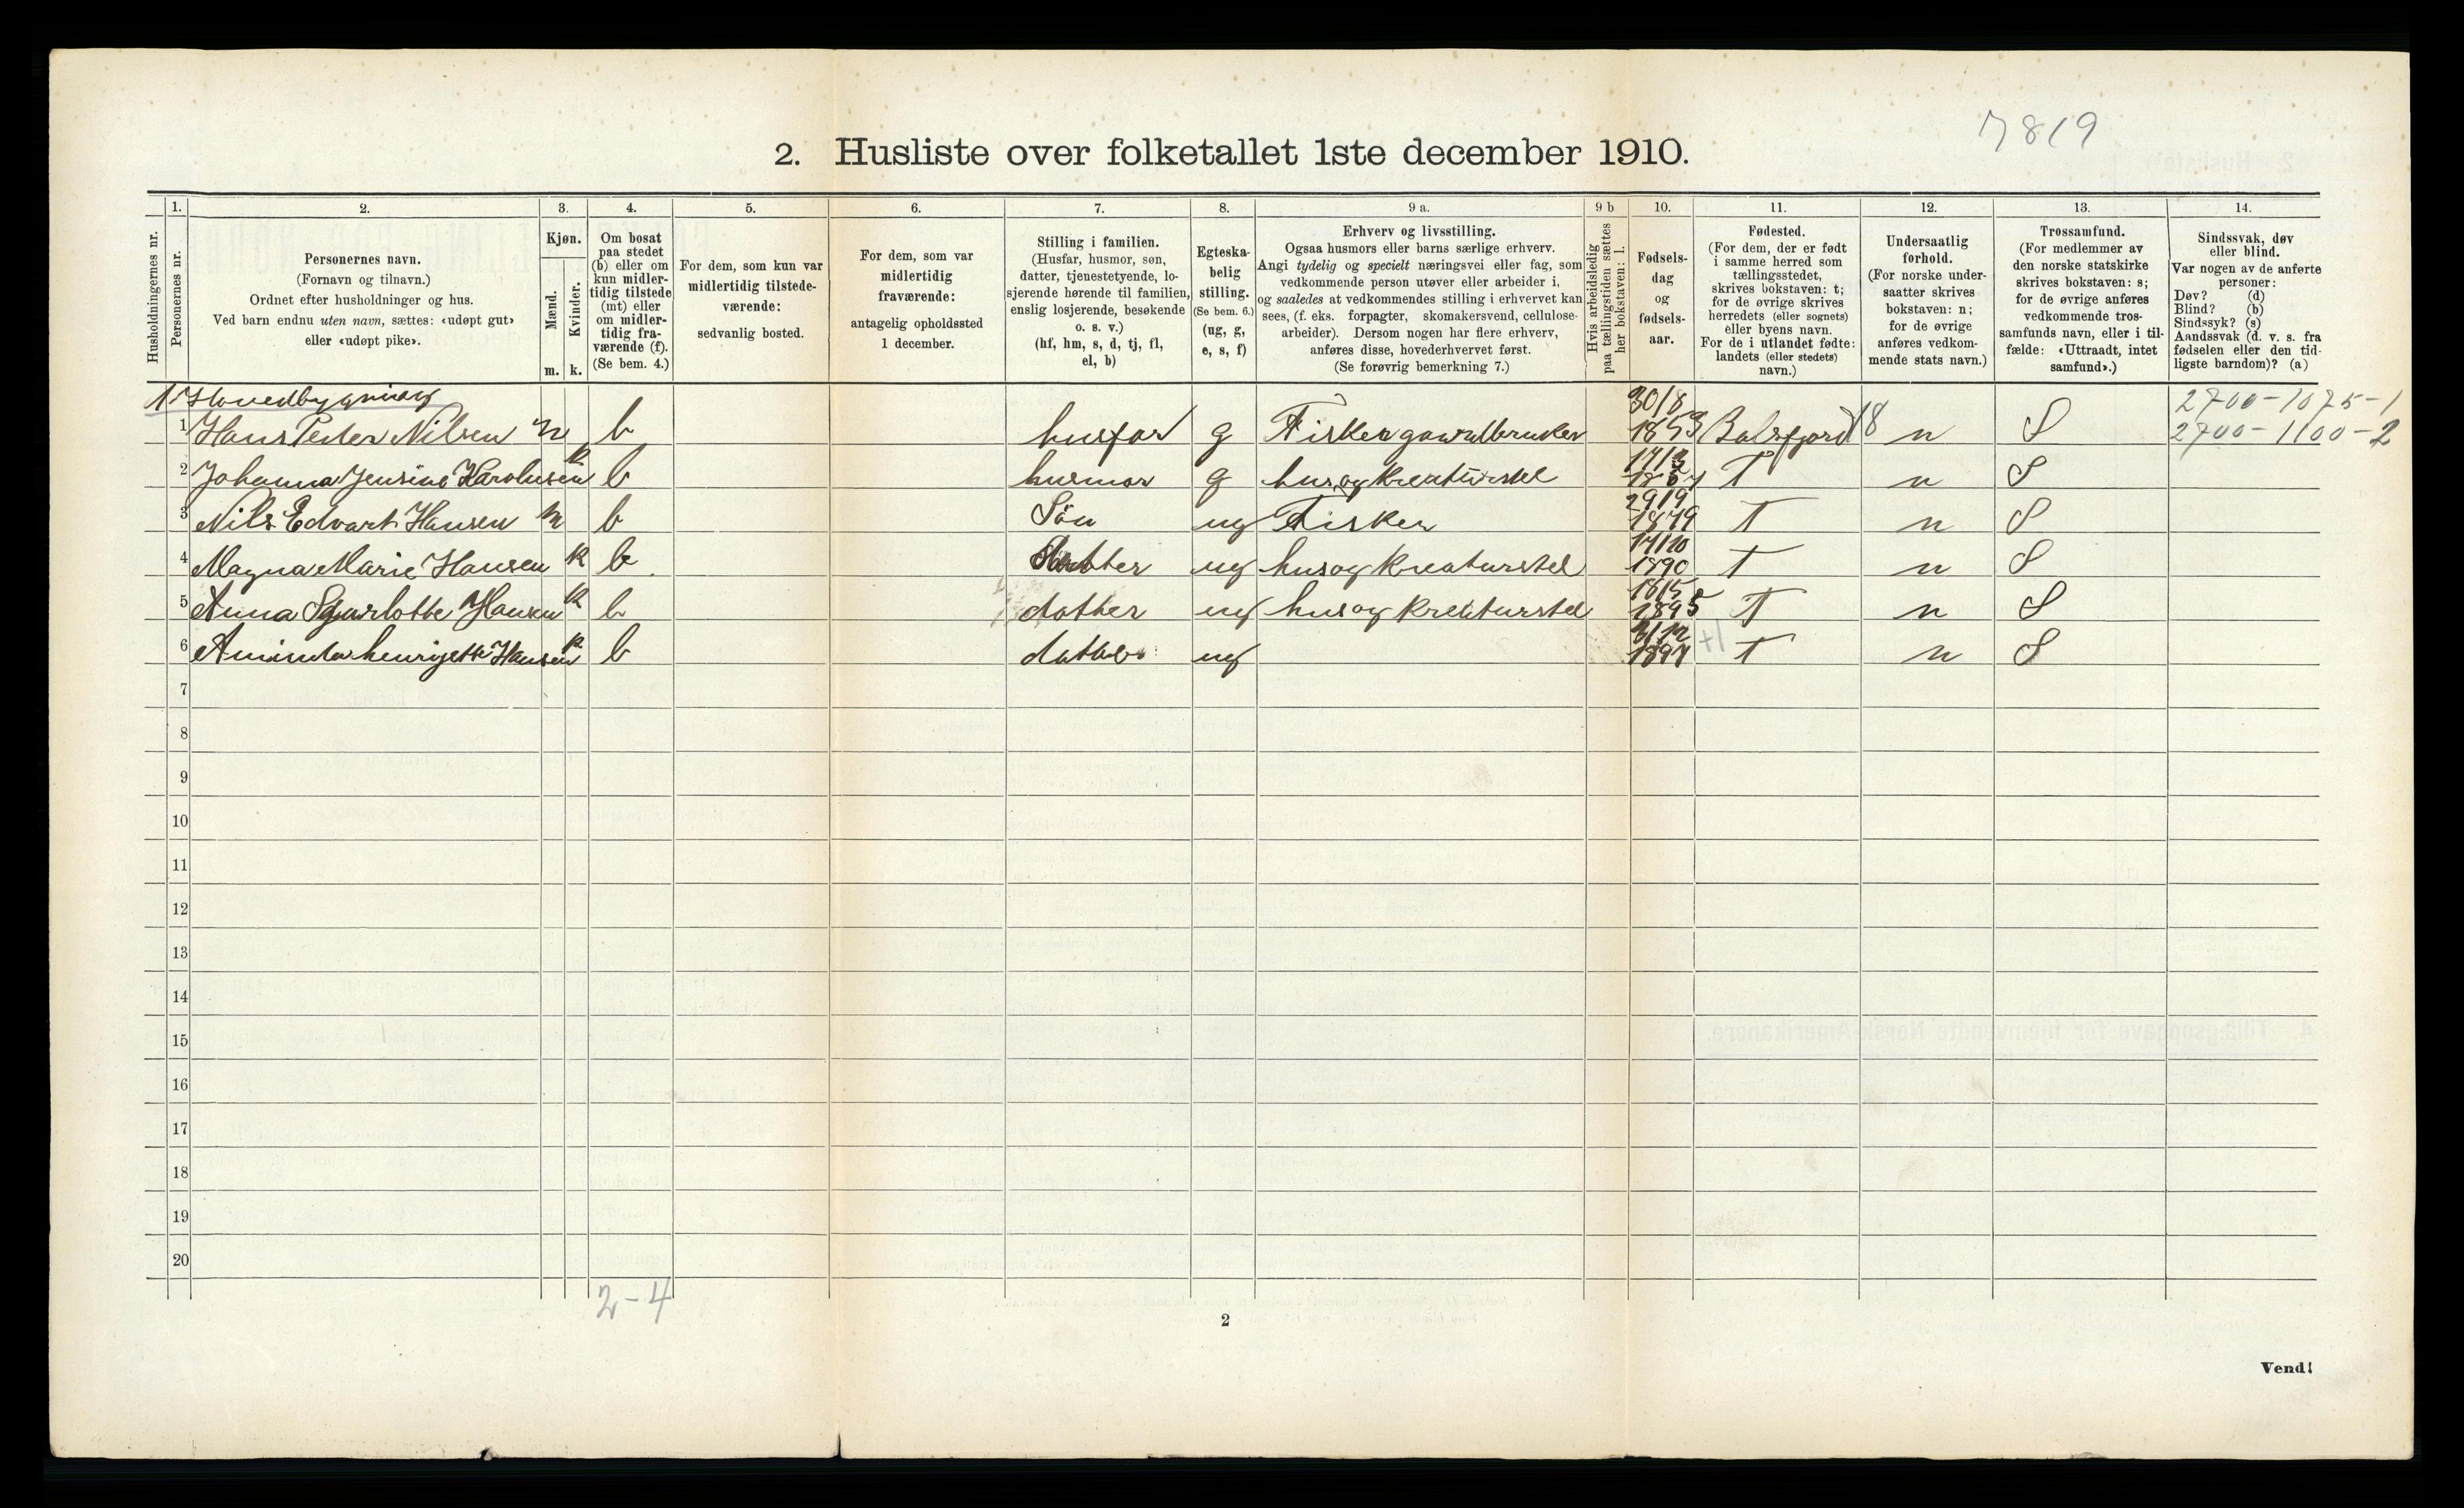 7819
2. Husliste over folketallet 1ste december 1910.
Husholdningernes nr.
1. Personernes nr.
2. Personernes navn.
(Fornavn og tilnavn.)
Ordnet efter husholdninger og hus.
Ved barn endnu uten navn, sættes: «udøpt gut»
eller «udøpt pike».
3. Kjøn.
Mænd. m.
Kvinder. k.
4. Om bosat
paa stedet
(b) eller om
kun midler-
tidig tilstede
(mt) eller
om midler-
tidig fra-
værende (f).
(Se bem. 4.)
5. For dem, som kun var
midlertidig tilstede-
værende:
sedvanlig bosted.
6. For dem, som var
midlertidig
fraværende:
antagelig opholdssted
1 december.
7. Stilling i familien.
(Husfar, husmor, søn,
datter, tjenestetyende, lo-
sjerende hørende til familien,
enslig losjerende, besøkende
o. s. v.)
(hf, hm, s, d, tj, fl,
el, b)
8. Egteska-
belig
stilling.
(Se bem. 6.)
(ug, g,
e, s, f)
9 a. Erhverv og livsstilling.
Ogsaa husmors eller barns særlige erhverv.
Angi tydelig og specielt næringsvei eller fag, som
vedkommende person utøver eller arbeider i,
og saaledes at vedkommendes stilling i erhvervet kan
sees, (f. eks. forpagter, skomakersvend, cellulose-
arbeider). Dersom nogen har flere erhverv,
anføres disse, hovederhvervet først.
(Se forøvrig bemerkning 7.)
9 b Hvis arbeidsledig
paa tællingstiden sættes
her bokstaven: l.
10. Fødsels-
dag
og
fødsels-
aar.
11. Fødested.
(For dem, der er født
i samme herred som
tællingsstedet,
skrives bokstaven: t;
for de øvrige skrives
herredets (eller sognets)
eller byens navn.
For de i utlandet fødte:
landets (eller stedets)
navn.)
12. Undersaatlig
forhold.
(For norske under-
saatter skrives
bokstaven: n;
for de øvrige
anføres vedkom-
mende stats navn.)
13. Trossamfund.
(For medlemmer av
den norske statskirke
skrives bokstaven: s;
for de øvrige anføres
vedkommende tros-
samfunds navn, eller i til-
fælde: «Uttraadt, intet
samfund».)
14. Sindssvak, døv
eller blind.
Var nogen av de anførte
personer:
Døv? (d)
Blind? (b)
Sindssyk? (s)
Aandssvak (d. v. s. fra
fødselen eller den tid-
ligste barndom)? (a)
1. Hovedbygning
2700-1075-1
2700-1100-2
1 Hans Peder Nilsen m b husfar g Fisker gaardbruker 30/8 1853 Balsfjord 18 n S
2 Johanna Jensine k b husmor g hus og kreaturstel T n S
3 Nils Edvart Hansen m b Sön ug Fisker 29/9 1879 T n S
4 Magna Marie Hansen k b datter ug hus og kreaturstel 1890 T n S
5 Anna Hansen k b datter ug hus og kreaturstel 18/5 1895 T n S
6 Hansen k b datter ug T n S
7
8
9
10
11
12
13
14
15
16
17
18
19
20
2-4
2
Vend!